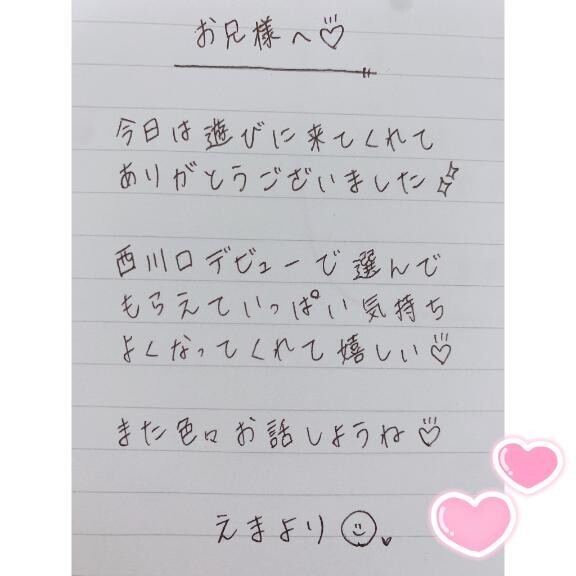 お兄様へ♡
今日は遊びに来てくれて
ありがとうございました✨
西川口デビューで選んで
もらえていっぱい気持ち
よくなってくれて嬉しい♡
また色々お話しようね♡
えまより